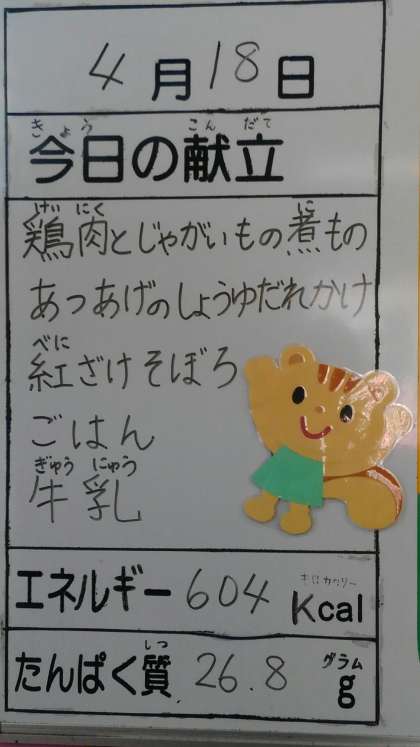 4月18日
きょう こんだて
今日の献立
けい にく に
鶏肉とじゃがいもの煮もの
あつあげのしょうゆだれかけ
べに
紅ざけそぼろ
ごはん
ぎゅう にゅう
牛乳
キロカロリー
エネルギー 604 Kcal
しつ グラム
たんぱく質 26.8 g